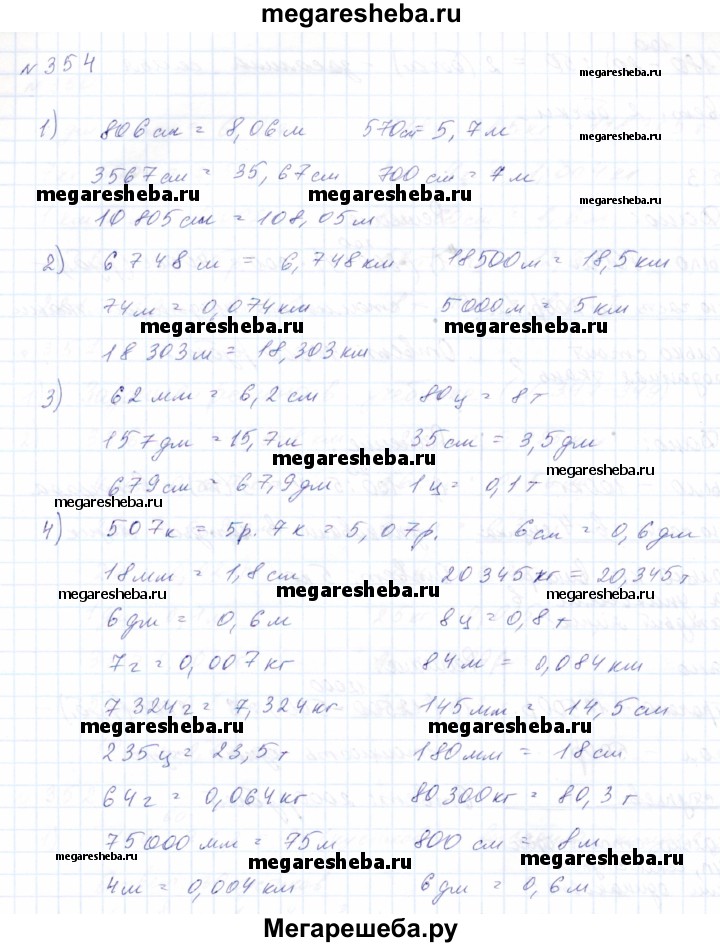 megaresheba.ru
№ 354
megaresheba.ru
1) 806 см = 8,06 м 570см = 5,7 м
megaresheba.ru
3567 см = 35,67 см 700 см = 7 м
megaresheba.ru megaresheba.ru megaresheba.ru
10 805 см = 108,05 м
2) 6 748 м = 6,748 км 18500 м = 18,5 км
megaresheba.ru
74 м = 0,074 км 5000 м = 5 км
megaresheba.ru megaresheba.ru
18 303 м = 18,303 км
3) 62 мм = 6,2 см 80 ц = 8 т
megaresheba.ru
157 дм = 15,7 м 35 см = 3,5 дм
megaresheba.ru megaresheba.ru
679 см = 67,9 дм 1 ц = 0,1 т
megaresheba.ru
4) 507 к = 5р. 7 к = 5,07 р. 6 см = 0,6 дм
18 мм = 1,8 см 20 345 кг = 20,345 т
megaresheba.ru megaresheba.ru megaresheba.ru
6 дм = 0,6 м 8 ц = 0,8 т
7 г = 0,007 кг 84 м = 0,084 км
7 324 г = 7,324 кг 145 мм = 14,5 см
megaresheba.ru megaresheba.ru
235 ц = 23,5 т 180 мм = 18 см
64 г = 0,064 кг 80 300 кг = 80,3 т
75 000 мм = 75 м 800 см = 8 м
megaresheba.ru megaresheba.ru megaresheba.ru
4 м = 0,004 км 6 дм = 0,6 м
Мегарешеба.ру